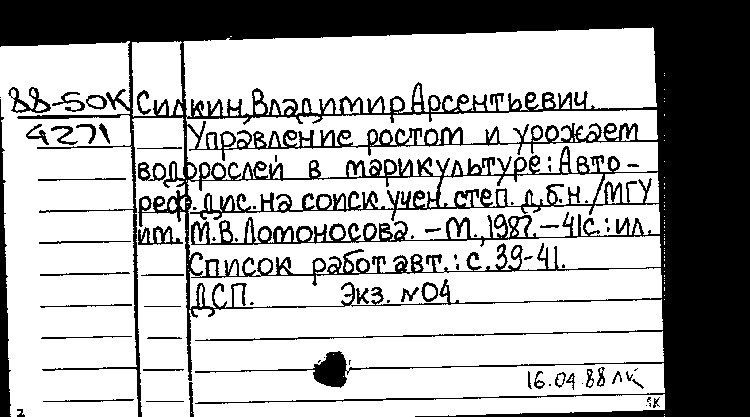 88-50К Силкин, Владимир Арсентьевич.
4271 Управление ростом и урожаем
водорослей в марикультуре: Авто-
реф. дис. на соиск. учен. степ. д.б.н./МГУ
им. М.В. Ломоносова. – М., 1987. – 41с.: ил.
Список работ авт.: с. 39-41.
ДСП. Экз. №04.
16.04.88
2